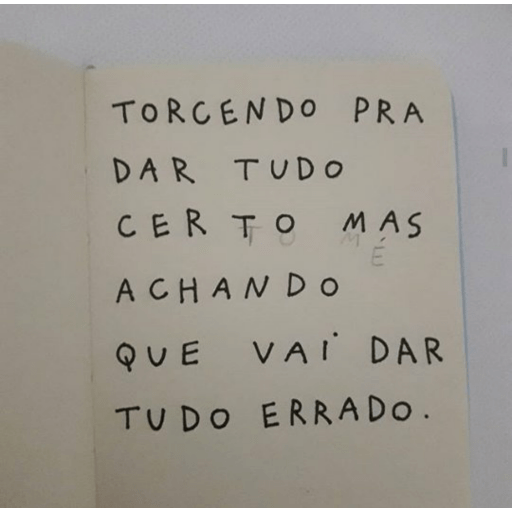 TORCENDO PRA
DAR TUDO
CERTO MAS
ACHANDO
QUE VAI DAR
TUDO ERRADO.